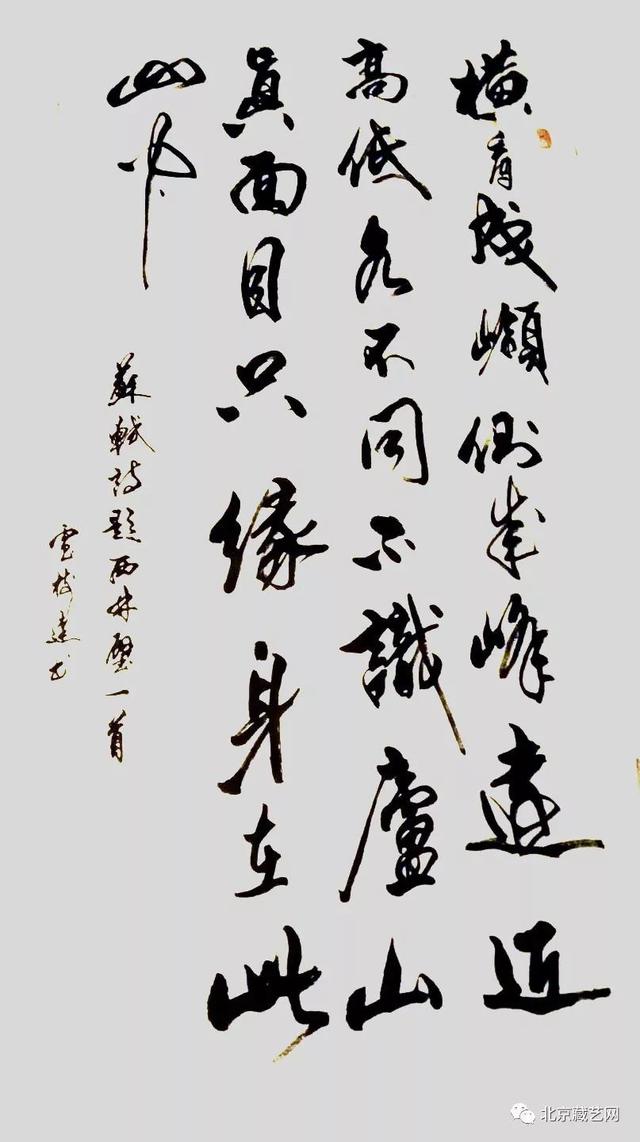 橫看成嶺側成峰遠近
高低各不同不識廬山
眞面目只緣身在此
山中
蘇軾詩題西林壁一首
北京藏艺网